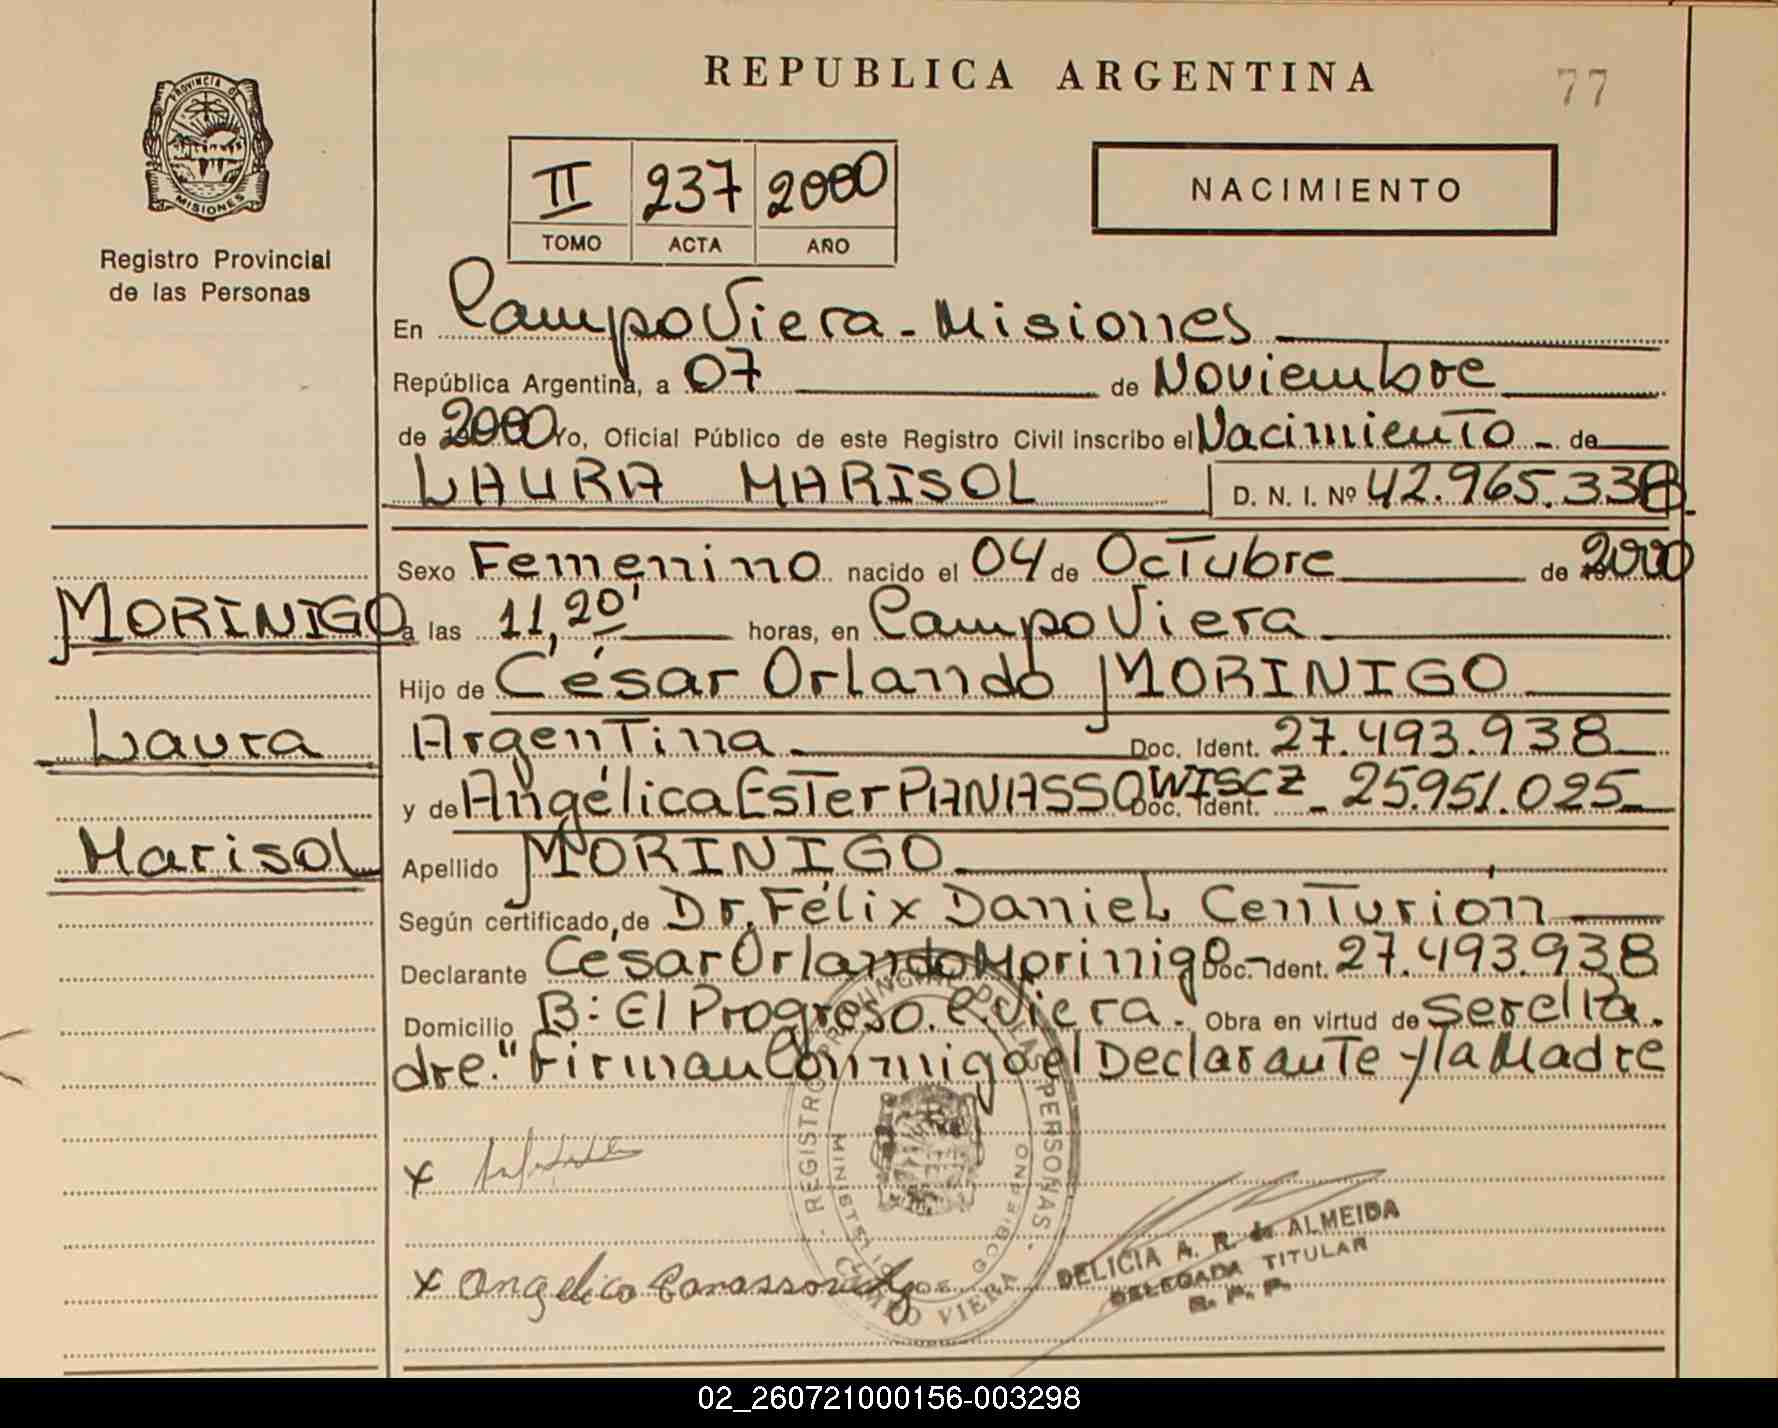 REPUBLICA ARGENTINA
77
PROVINCIA DE
MISIONES
Registro Provincial
de las Personas
II 237 2000
TOMO ACTA AÑO
NACIMIENTO
En Campo Viera - Misiones
República Argentina, a 07 de Noviembre
de 2000 Yo, Oficial Público de este Registro Civil inscribo el Nacimiento - de
LAURA MARISOL D. N. I. Nº 42.965.338
Sexo Femenino nacido el 04 de Octubre de 2000
MORINIGO
a las 11,20' horas, en Campo Viera
Hijo de César Orlando MORINIGO
Laura
Argentina Doc. Ident. 27.493.938
y de Angélica Ester PANASSOWISCZ Doc. Ident. - 25.951.025
Marisol
Apellido MORINIGO
Según certificado, de Dr. Félix Daniel Centurión
Declarante César Orlando Morinigo - Doc. Ident. 27.493.938
Domicilio B: El Progreso. C. Viera. Obra en virtud de ser el Pa.
dre." Firman Conmigo el Declarante y la Madre
x
x Angelica
REGISTRO PROVINCIAL DE LAS PERSONAS
MINISTERIO DE GOBIERNO
CAMPO VIERA
DELICIA A. R. de ALMEIDA
DELEGADA TITULAR
R. P. P.
02_260721000156-003298